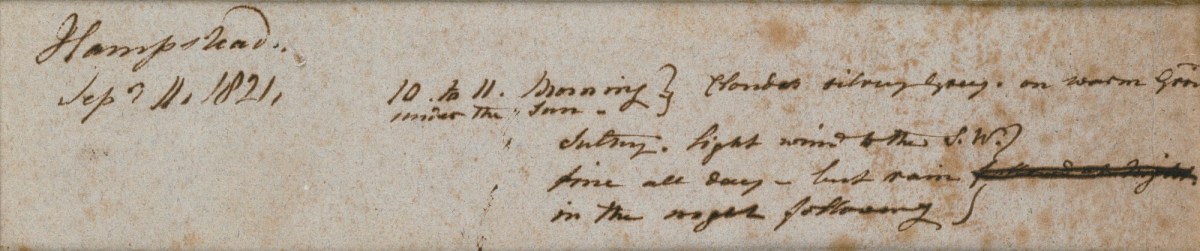 Hampstead.
Sepr 11, 1821,
10. to 11. Morning } Clouds silvery Grey. on warm Gro
under the Sun -
Sultry. light wind to the S.W.
fine all day - but rain
in the night following